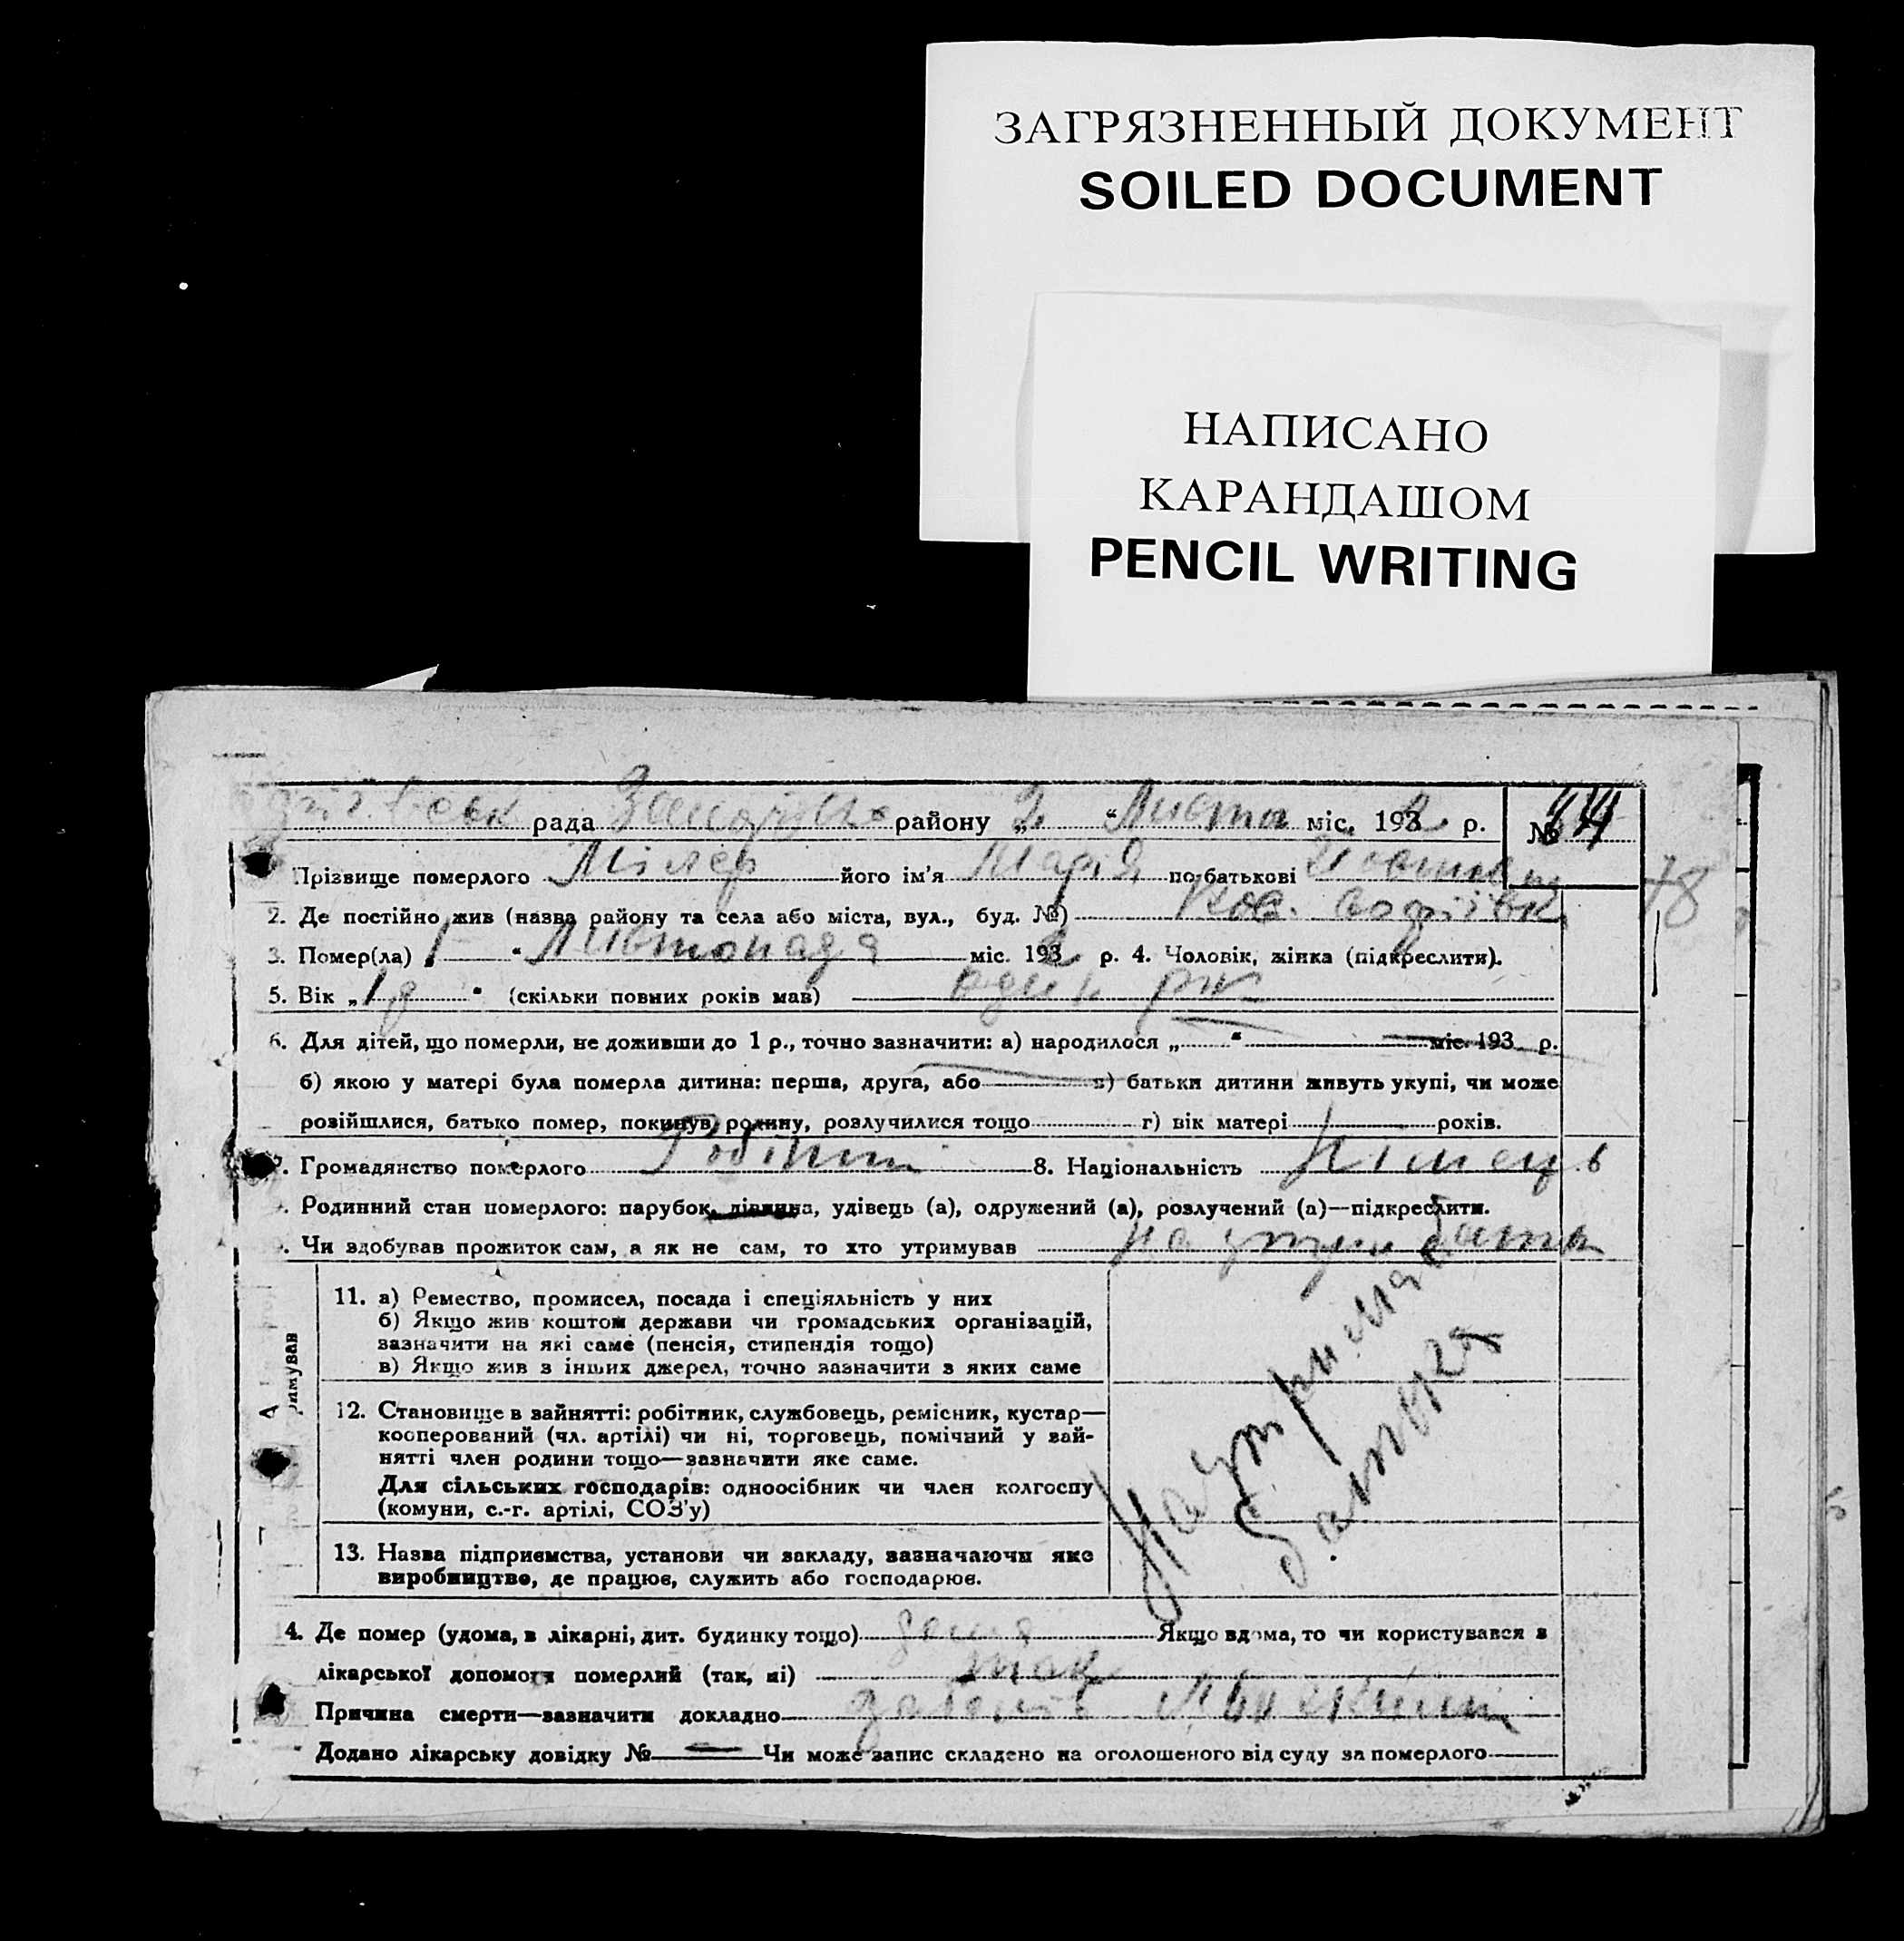 ЗАГРЯЗНЕННЫЙ ДОКУМЕНТ
SOILED DOCUMENT
НАПИСАНО
КАРАНДАШОМ
PENCIL WRITING
рада району „ 2 “ Листо міс. 1932 р. №
Прізвище померлого Мілер його ім'я Марія по батькові
78
2. Де постійно жив (назва району та села або міста, вул., буд. №)
3. Помер(ла) „ 1 “ Листопада міс. 1932 р. 4. Чоловік, жінка (підкреслити).
5. Вік „ 1 р “ (скільки повних років мав) один рік
6. Для дітей, що померли, не доживши до 1 р., точно зазначити: а) народилося „ “ міс. 193 р.
б) якою у матері була померла дитина: перша, друга, або в) батьки дитини живуть укупі, чи може
розійшлися, батько помер, покинув родину, розлучилися тощо г) вік матері років.
7. Громадянство померлого 8. Національність Німець
. Родинний стан померлого: парубок, дівчина, удівець (а), одружений (а), розлучений (а)—підкреслити.
. Чи здобував прожиток сам, а як не сам, то хто утримував на утрим батька
римував
11. а) Ремество, промисел, посада і спеціяльність у них
б) Якщо жив коштом держави чи громадських організацій,
зазначити на які саме (пенсія, стипендія тощо)
в) Якщо жив з інших джерел, точно зазначити з яких саме
12. Становище в зайнятті: робітник, службовець, ремісник, кустар—
кооперований (чл. артілі) чи ні, торговець, помічний у зай-
нятті член родини тощо—зазначити яке саме.
Для сільських господарів: одноосібник чи член колгоспу
(комуни, с.-г. артілі, СОЗ'у)
13. Назва підприємства, установи чи закладу, зазначаючи яке
виробництво, де працює, служить або господарює.
На утрима
батька
4. Де помер (удома, в лікарні, дит. будинку тощо) дома Якщо вдома, то чи користувався з
лікарської допомоги померлий (так, ні) так
Причина смерти—зазначити докладно
Додано лікарську довідку № — Чи може запис складено на оголошеного від суду за померлого